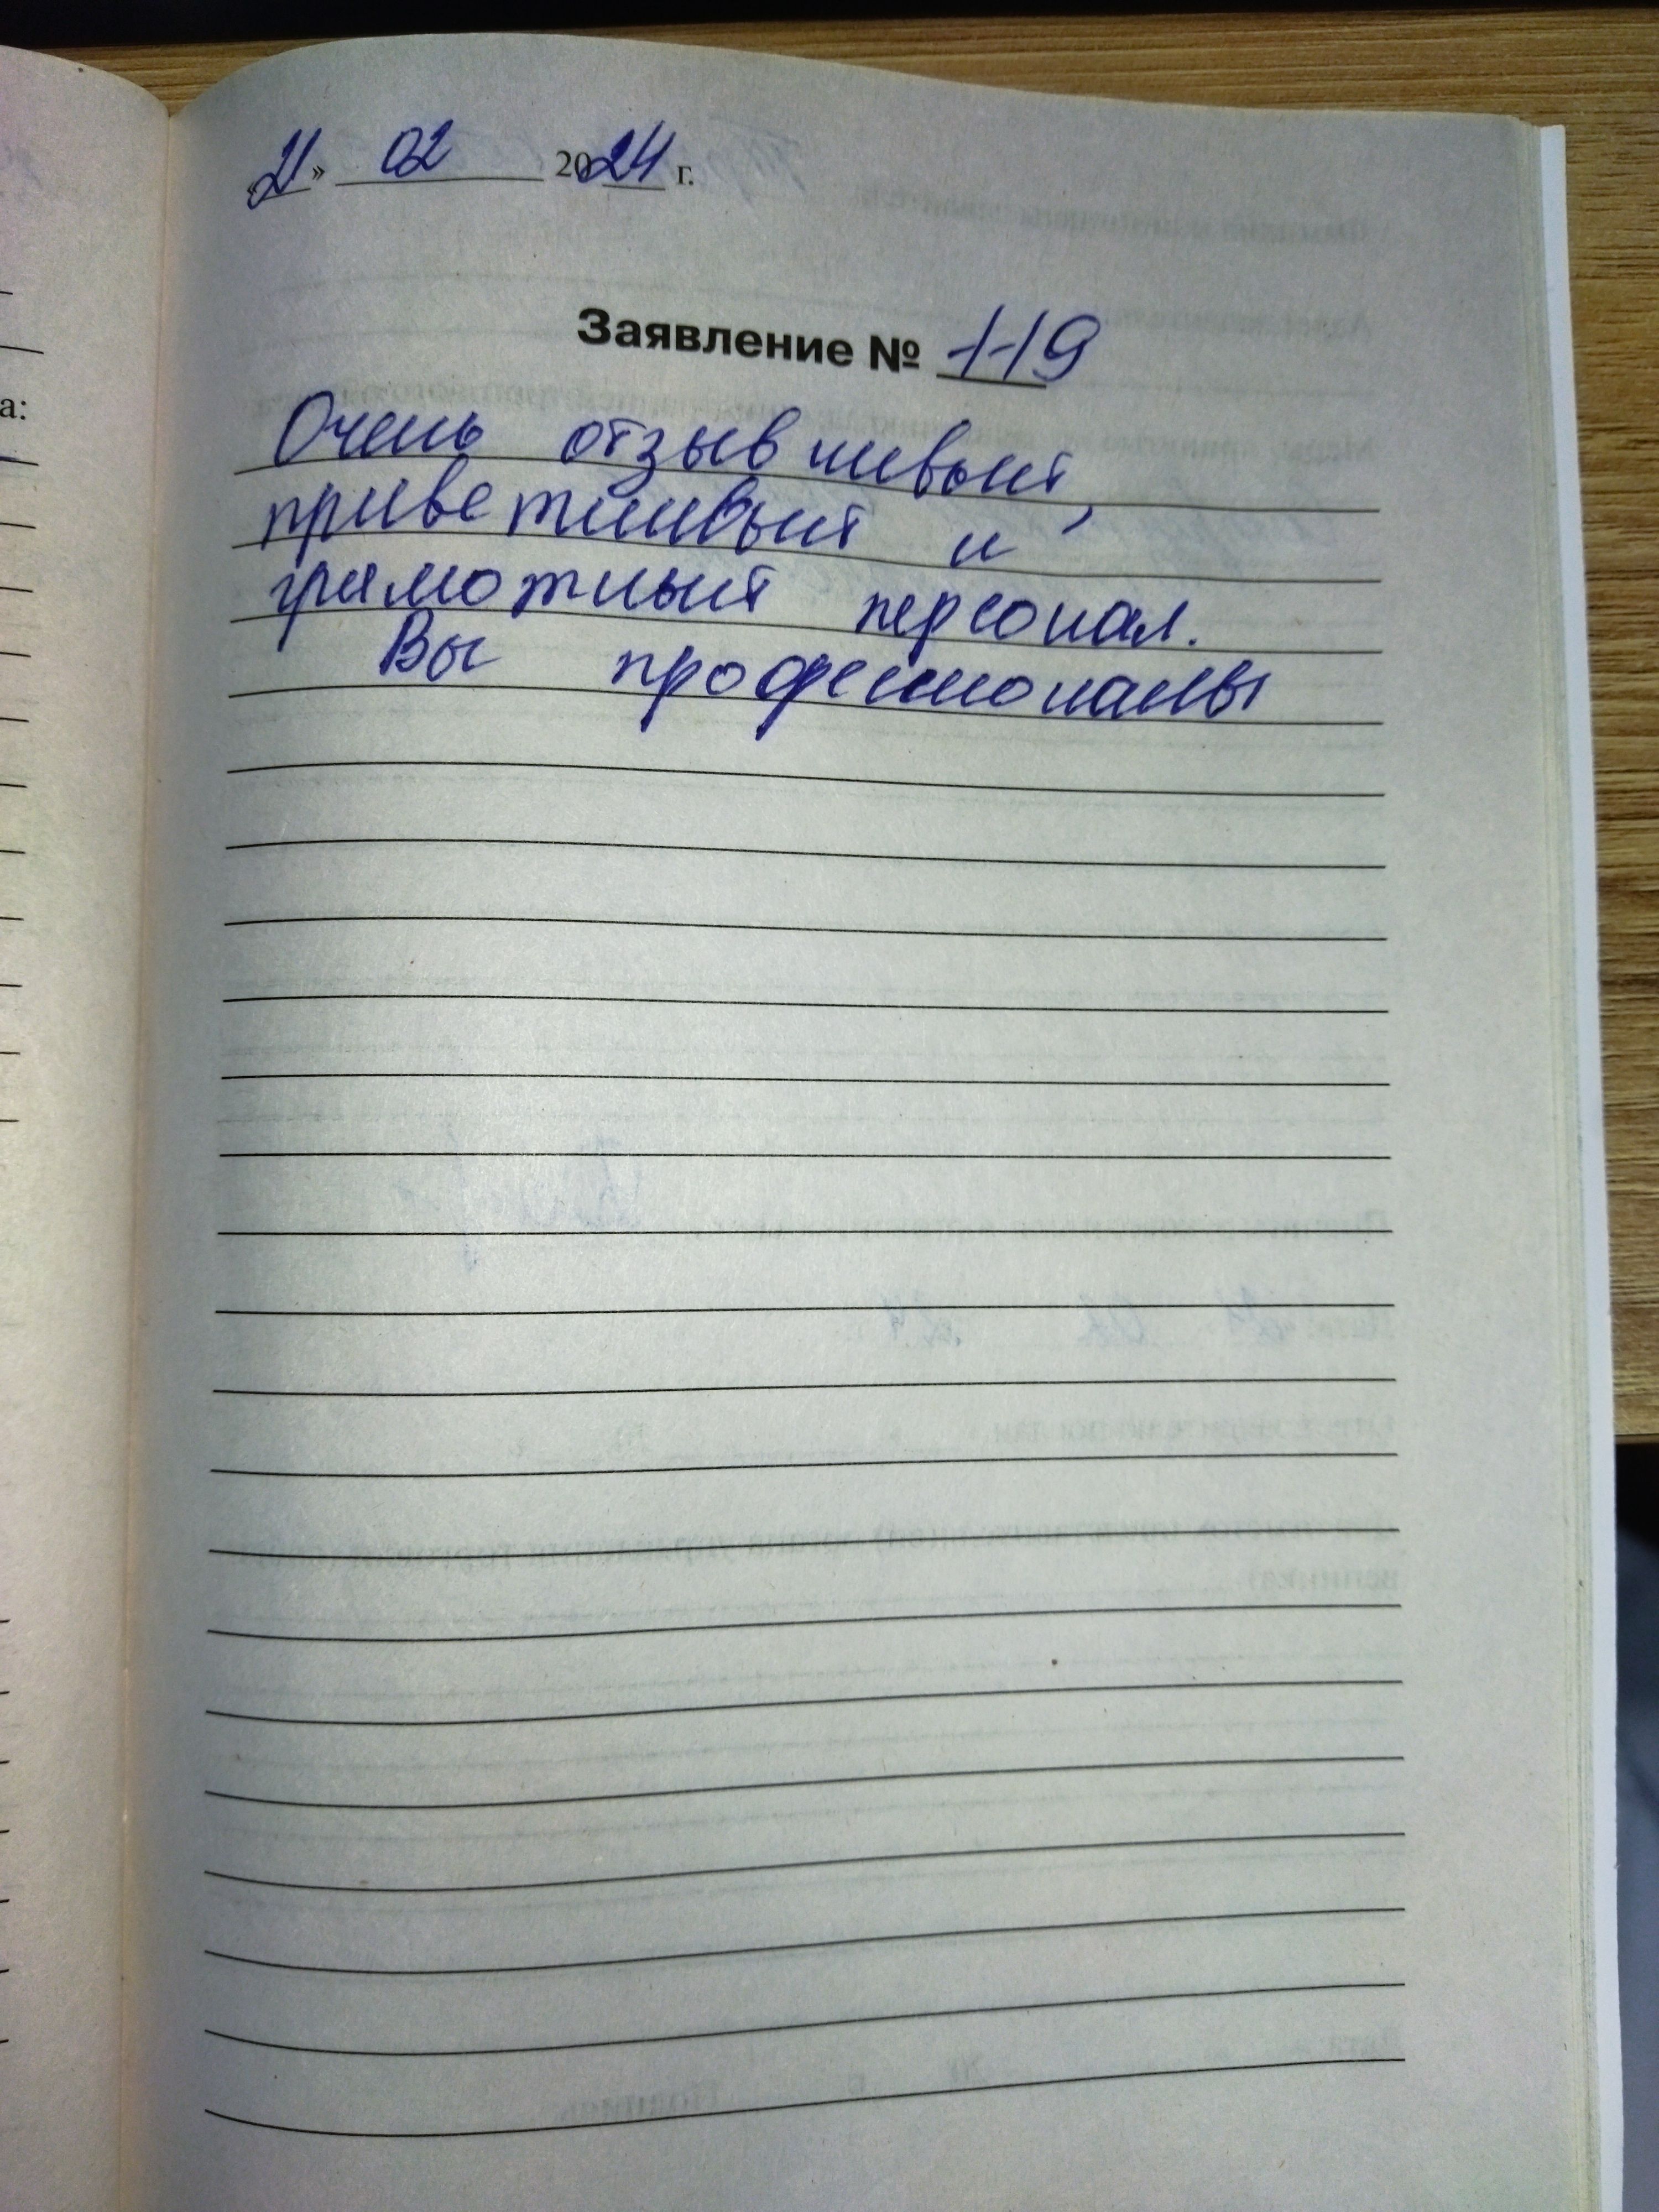 «21» 02 2024 г.
Заявление № 119
Очень отзывчивый,
приветливый и
грамотный персонал.
Вы профессионалы
а: